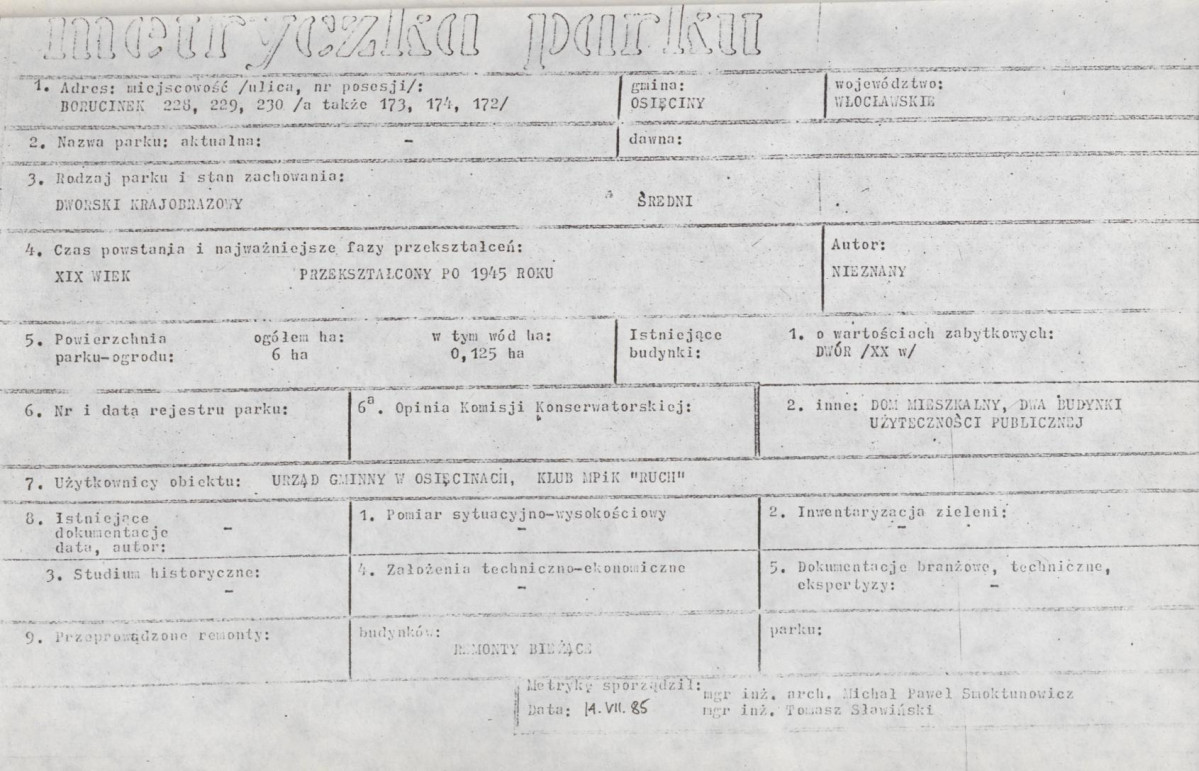 metryczka parku
1. Adres: miejscowość /ulica, nr posesji/:
BORUCINEK 228, 229, 230 /a także 173, 174, 172/
gmina:
OSIĘCINY
województwo:
WŁOCŁAWSKIE
2. Nazwa parku: aktualna: -
dawna:
3. Rodzaj parku i stan zachowania:
DWORSKI KRAJOBRAZOWY ŚREDNI
4. Czas powstania i najważniejsze fazy przekształceń:
XIX WIEK PRZEKSZTAŁCONY PO 1945 ROKU
Autor:
NIEZNANY
5. Powierzchnia ogółem ha: w tym wód ha:
parku-ogrodu: 6 ha 0,125 ha
Istniejące
budynki:
1. o wartościach zabytkowych:
DWÓR /XX w/
6. Nr i data rejestru parku:
6a. Opinia Komisji Konserwatorskiej:
2. inne: DOM MIESZKALNY, DWA BUDYNKI
UŻYTECZNOŚCI PUBLICZNEJ
7. Użytkownicy obiektu: URZĄD GMINNY W OSIĘCINACH, KLUB MPiK "RUCH"
8. Istniejące
dokumentacje -
data, autor:
1. Pomiar sytuacyjno-wysokościowy
-
2. Inwentaryzacja zieleni:
-
3. Studium historyczne:
-
4. Założenia techniczno-ekonomiczne
-
5. Dokumentacje branżowe, techniczne,
ekspertyzy: -
9. Przeprowadzone remonty:
budynków:
REMONTY BIEŻĄCE
parku:
Metrykę sporządził: mgr inż. arch. Michał Paweł Smoktunowicz
Data: 14.VII.85 mgr inż. Tomasz Sławiński